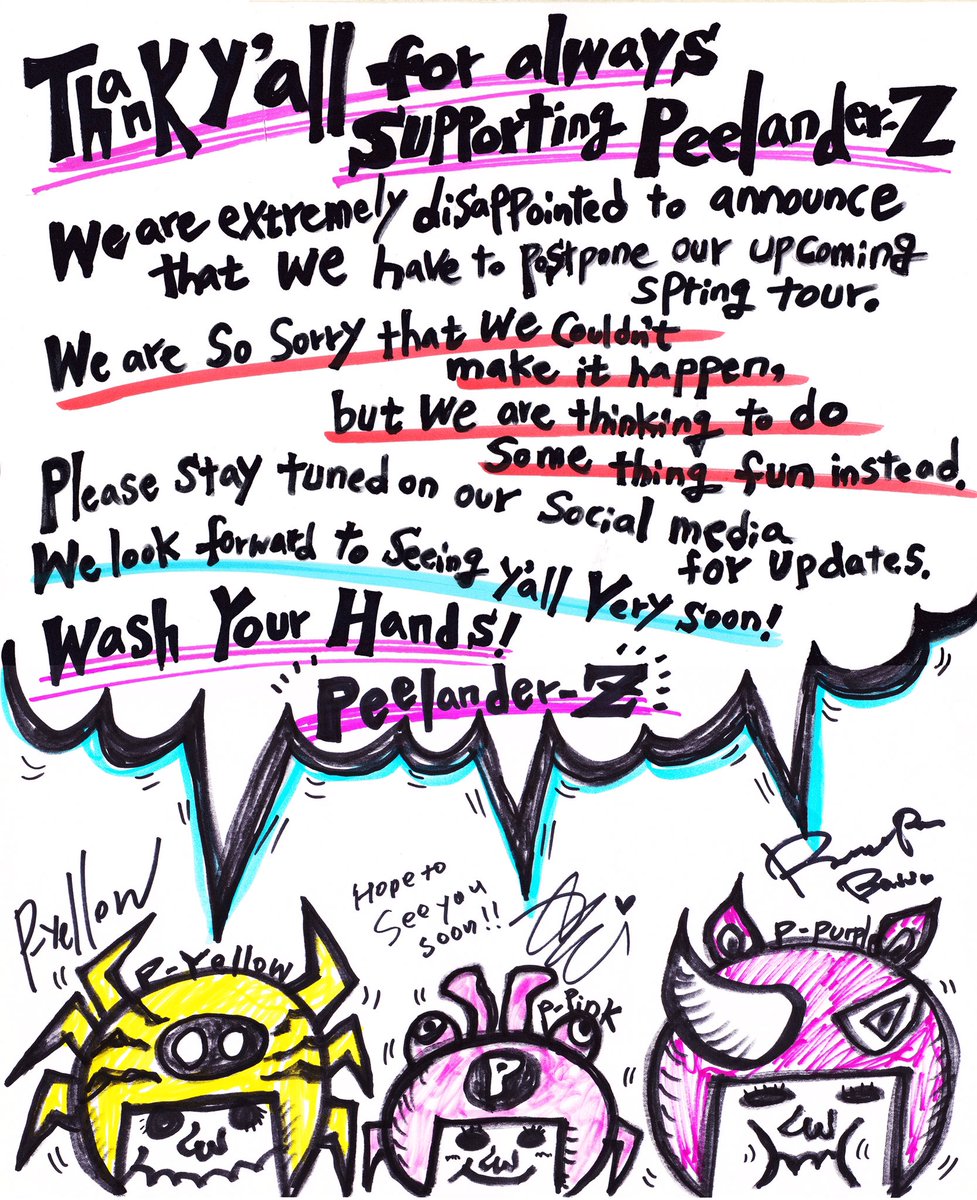 Thank Y'all for always
supporting Peelander-Z
We are extremely disappointed to announce
that we have to postpone our upcoming
spring tour.
We are So Sorry that we couldn't
make it happen,
but we are thinking to do
Some thing fun instead.
Please stay tuned on our Social media
for updates.
We look forward to seeing y'all very soon!
Wash Your Hands!
Peelander-Z
P-Yellow
Hope to
See you
soon!!
P-Yellow
P-Pink
P
P-Purple